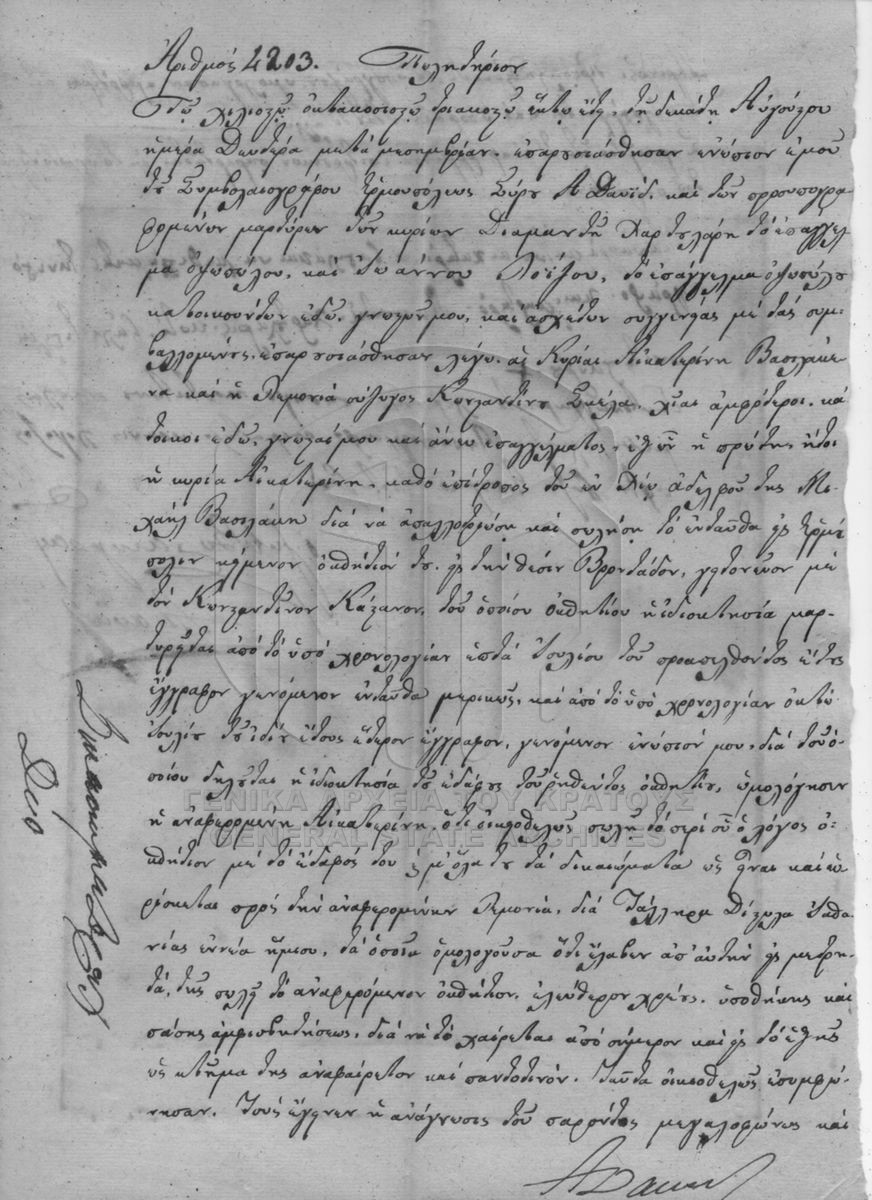 Ἀριθμός 4203. Πωλητήριον
Τῷ χιλιοστῷ ὀκτακοσιοστῷ τριακοστῷ ἕκτῳ ἔτει, τῇ δεκάτῃ Αὐγούστου
ἡμέρᾳ Δευτέρᾳ μετά μεσημβρίαν. ἐπαρουσιάσθησαν ἐνώπιον ἐμοῦ
τοῦ Συμβολαιογράφου Ἑρμουπόλεως Σύρου Α Δαυίδ. καί τῶν προσυπογρα-
φομένων μαρτύρων τῶν κυρίων Διαμαντῆ Χαρτουλάρη τό ἐπάγγελ
μα ὀψοπώλου, καί Ἰωάννου Λοΐζου, τό ἐπάγγελμα ὀψοπώλου
κατοικούντων ἐδῶ, γνωστῶν μου, καί ἀσχέτων συγγενείας μέ τάς συμ-
βαλλομένας, ἐπαρουσιάσθησαν λέγω αἱ Κυρίαι Αἰκατερίνη Βασιλάκε-
να καί ἡ Λεμονιά σύζυγος Κωνσταντίνου Σκέλα. χίαι ἀμφότεροι. κά
τοικοι ἐδῶ, γνωσταί μου καί ἄνευ ἐπαγγέλματος, ἐξ ὧν ἡ πρώτη, ἤτοι
ἡ κυρία Αἰκατερίνη, καθό ἐπίτροπος τοῦ ἐν Χίῳ ἀδελφοῦ της Μι-
χαήλ Βασιλάκη διά νά ἀπαλλοτριώσῃ καί πωλήσῃ τό ἐνταῦθα εἰς Ἑρμού
πολιν κείμενον ὀσπήτιόν του εἰς τήν θέσιν Βροντάδον, γειτονεῦον μέ
τόν Κωνσταντῖνον Κάζανον, τοῦ ὁποίου ὀσπητίου ἡ ἰδιοκτησία μαρ-
τυρεῖται ἀπό τό ὑπό χρονολογίαν ἑπτά Ἰουλίου τοῦ προαπελθόντος ἔτους
ἔγγραφον γενόμενον ἐνταῦθα μερικῶς, καί ἀπό τό ὑπό χρονολογίαν ὀκτώ
Ἰουλίου τοῦ ἰδίου ἔτους ἕτερον ἔγγραφον, γενόμενον ἐνώπιόν μου, διά τοῦ ὁ-
ποίου δηλοῦται ἡ ἰδιοκτησία τοῦ ἐδάφους τοῦ ῥηθέντος ὀσπητίου, ὡμολόγησεν
ἡ ἀναφερομένη Αἰκατερίνη, ὅτι οἰκιοθελῶς πωλεῖ τό περί οὗ ὁ λόγος ὀ-
σπήτιον μέ τό ἔδαφός του καί μ' ὅλα του τά δικαιώματα ὡς εἶναι καί εὑ
ρίσκεται πρός τήν ἀναφερομένην Λεμονιά, διά Τάλληρα Δίστηλα Ἱσπα
νίας ἐννέα ἥμισυ, τά ὁποῖα ὁμολογοῦσα ὅτι ἔλαβεν ἀπ' αὐτήν εἰς μετρη-
τά, τῆς πωλεῖ τό ἀναφερόμενον ὀσπήτιον, ἐλεύθερον χρέους, ὑποθήκης καί
πάσης ἀμφισβητήσεως, διά νά τό χαίρεται ἀπό σήμερον καί εἰς τό ἑξῆς
ὡς κτῆμα της ἀναφαίρετον καί παντοτινόν. Ταῦτα οἰκιοθελῶς ἐσυμφώ-
νησαν. Τούς ἔγεινεν ἡ ἀνάγνωσις τοῦ παρόντος μεγαλοφώνως καί
ΓΕΝΙΚΑ ΑΡΧΕΙΑ ΤΟΥ ΚΡΑΤΟΥΣ
GENERAL STATE ARCHIVES
Δύο